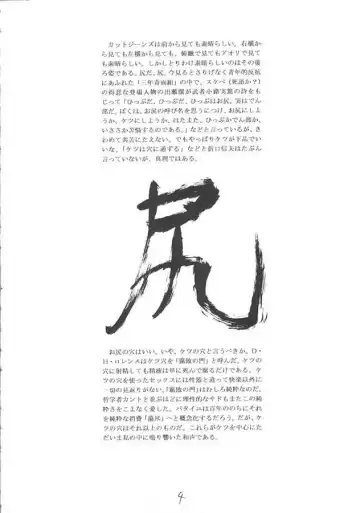 カットジーンズは前から見ても素晴らしい。右横か
ら見ても左横から見ても、俯瞰で見てもアオリで見て
も素晴らしい。しかしとりわけ素晴らしいのはその後
ろ姿である。尻だ。尻。今見るとさりげなく青年の
にあふれた「三年
の得意な登場人物の
じって「ひっぷだ、ひっぷだ、ひっぷはお尻、実はでん
部だ。ぼくは、お尻の呼び名を思う
うか、ケツにしようか、はたまた、ひっぷかでん部か、
いささか苦悩するのである。」などと言っているが、き
わめて共苦にたえない。でもやっぱりケツが下品でい
いな。「ケツは穴に通ずる」などと折口信夫はたぶん
言っていないが、真理ではある。
尻
お尻の穴はいい。いや、ケツの穴と言うべきか。D・
H・ロレンスはケツ穴を「の門」と呼んだ。ケツの
穴に射精しても精液は単に死んで腐るだけである。ケ
ツの穴を使ったセックスには性器と違って快楽以外に
一切の見返りがない。「の門」はむしろ純粋なのだ。
哲学者カントと並ぶほどに理性的なサドもまたこの純
粋さをこよなく愛した。バタイユは百年ののちにそれ
を純粋な消費「蕩尽」へと概念化するだろう。だが、ケ
ツの穴はそれ以上のものだ。これらがケツを中心にた
だいま私の中に鳴り響いた和声である。
4